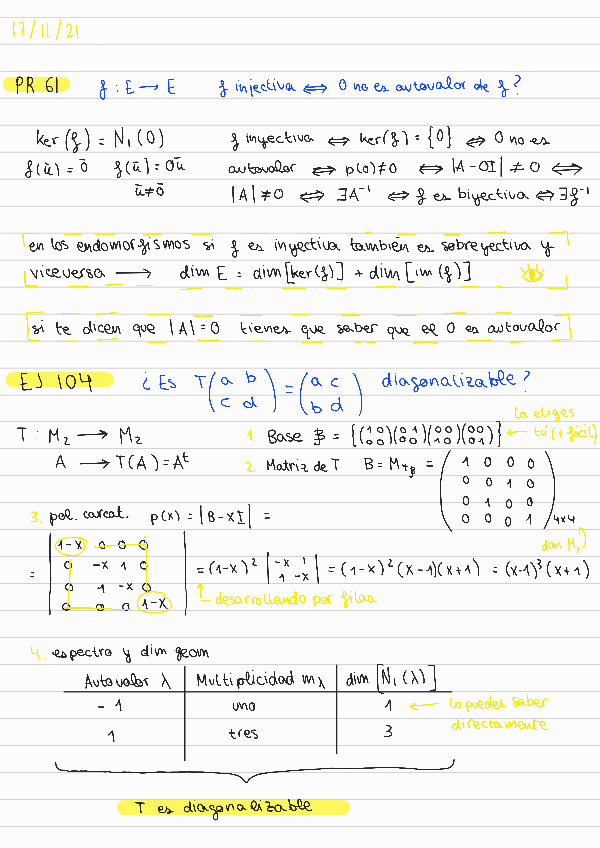 17/11/21
PR 61 f : E → E f injectiva ⟺ 0 no es autovalor de f?
ker(f) = N₁(0) f inyectiva ⟺ ker(f) = {0} ⟺ 0 no es
f(ū) = 0̄ f(ū) = 0ū autovalor ⟺ p(0) ≠ 0 ⟺ |A - 0I| ≠ 0 ⟺
ū ≠ 0̄ |A| ≠ 0 ⟺ ∃A⁻¹ ⟺ f es biyectiva ⟺ ∃f⁻¹
en los endomorfismos si f es inyectiva también es sobreyectiva y
viceversa → dim E = dim[ker(f)] + dim[im(f)]
si te dicen que |A| = 0 tienes que saber que el 0 es autovalor
EJ 104 ¿Es T(a b / c d) = (a c / b d) diagonalizable?
la eliges
T : M₂ → M₂ 1. Base B = {(1 0 / 0 0)(0 1 / 0 0)(0 0 / 1 0)(0 0 / 0 1)} ← tú (+ fácil)
A → T(A) = Aᵗ 2. Matriz de T B = M_{T_B} = (1 0 0 0 / 0 0 1 0 / 0 1 0 0 / 0 0 0 1) 4x4
3. pol. carcat. p(x) = |B - xI| =
dim M₂
= |1-x 0 0 0 / 0 -x 1 0 / 0 1 -x 0 / 0 0 0 1-x| = (1-x)² |-x 1 / 1 -x| = (1-x)² (x-1)(x+1) = (x-1)³ (x+1)
desarrollando por filas
4. espectro y dim geom
Autovalor λ Multiplicidad m_λ dim [N₁(λ)]
-1 uno 1 ← lo puedes saber
directamente
1 tres 3
T es diagonalizable